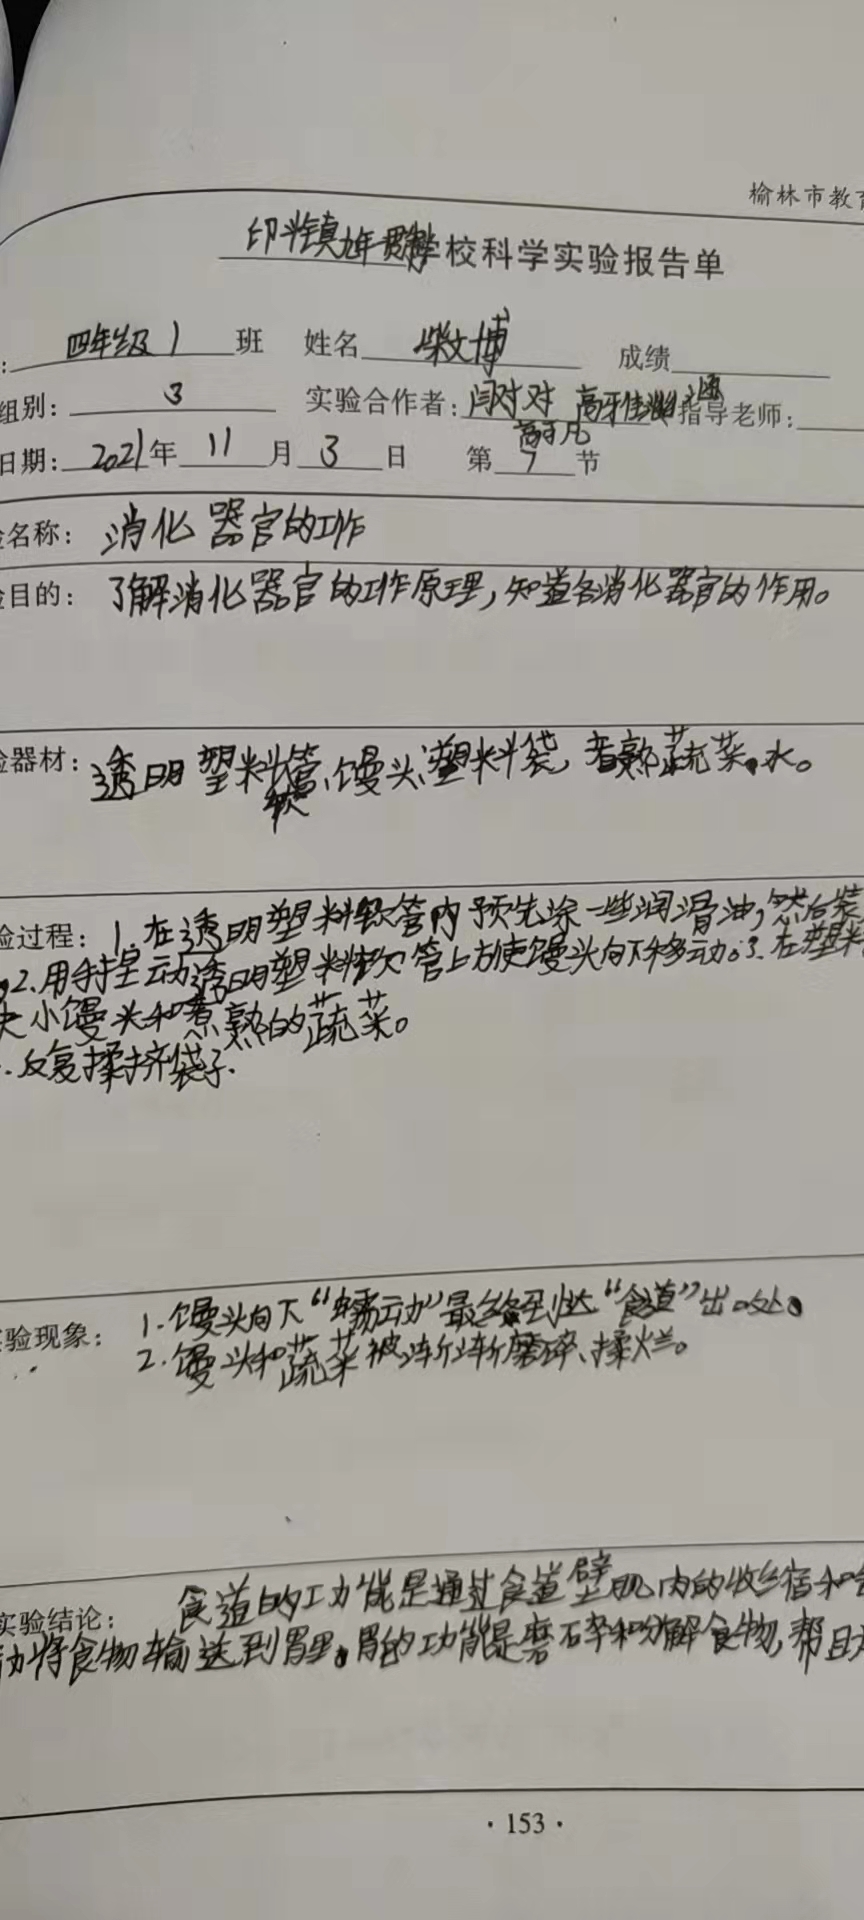 榆林市教育
印斗镇九年贯制学校科学实验报告单
: 四年级1 班 姓名 柴文博 成绩
组别: 3 实验合作者: 闫对对 高 佳 涵 指导老师:
高子凡
日期: 2021年 11 月 3 日 第 7 节
验名称: 消化器官的工作
验目的: 了解消化器官的工作原理,知道各消化器官的作用。
验器材: 透明塑料管、馒头、塑料袋,煮熟蔬菜,水。
软
验过程: 1.在透明塑料软管内预先涂一些润滑油,然后装
2.用手捏动透明塑料软管上方使馒头向下移动。3.在塑料
小馒头和煮熟的蔬菜。
.反复揉挤袋子.
实验现象: 1.馒头向下“蠕动”最终到达“食道”出口处。
2.馒头和蔬菜被渐渐磨碎、揉烂。
实验结论: 食道的工功能是通过食道壁肌肉的收缩和
动将食物输送到胃里。胃的功能是磨碎和分解食物,帮助
·153·